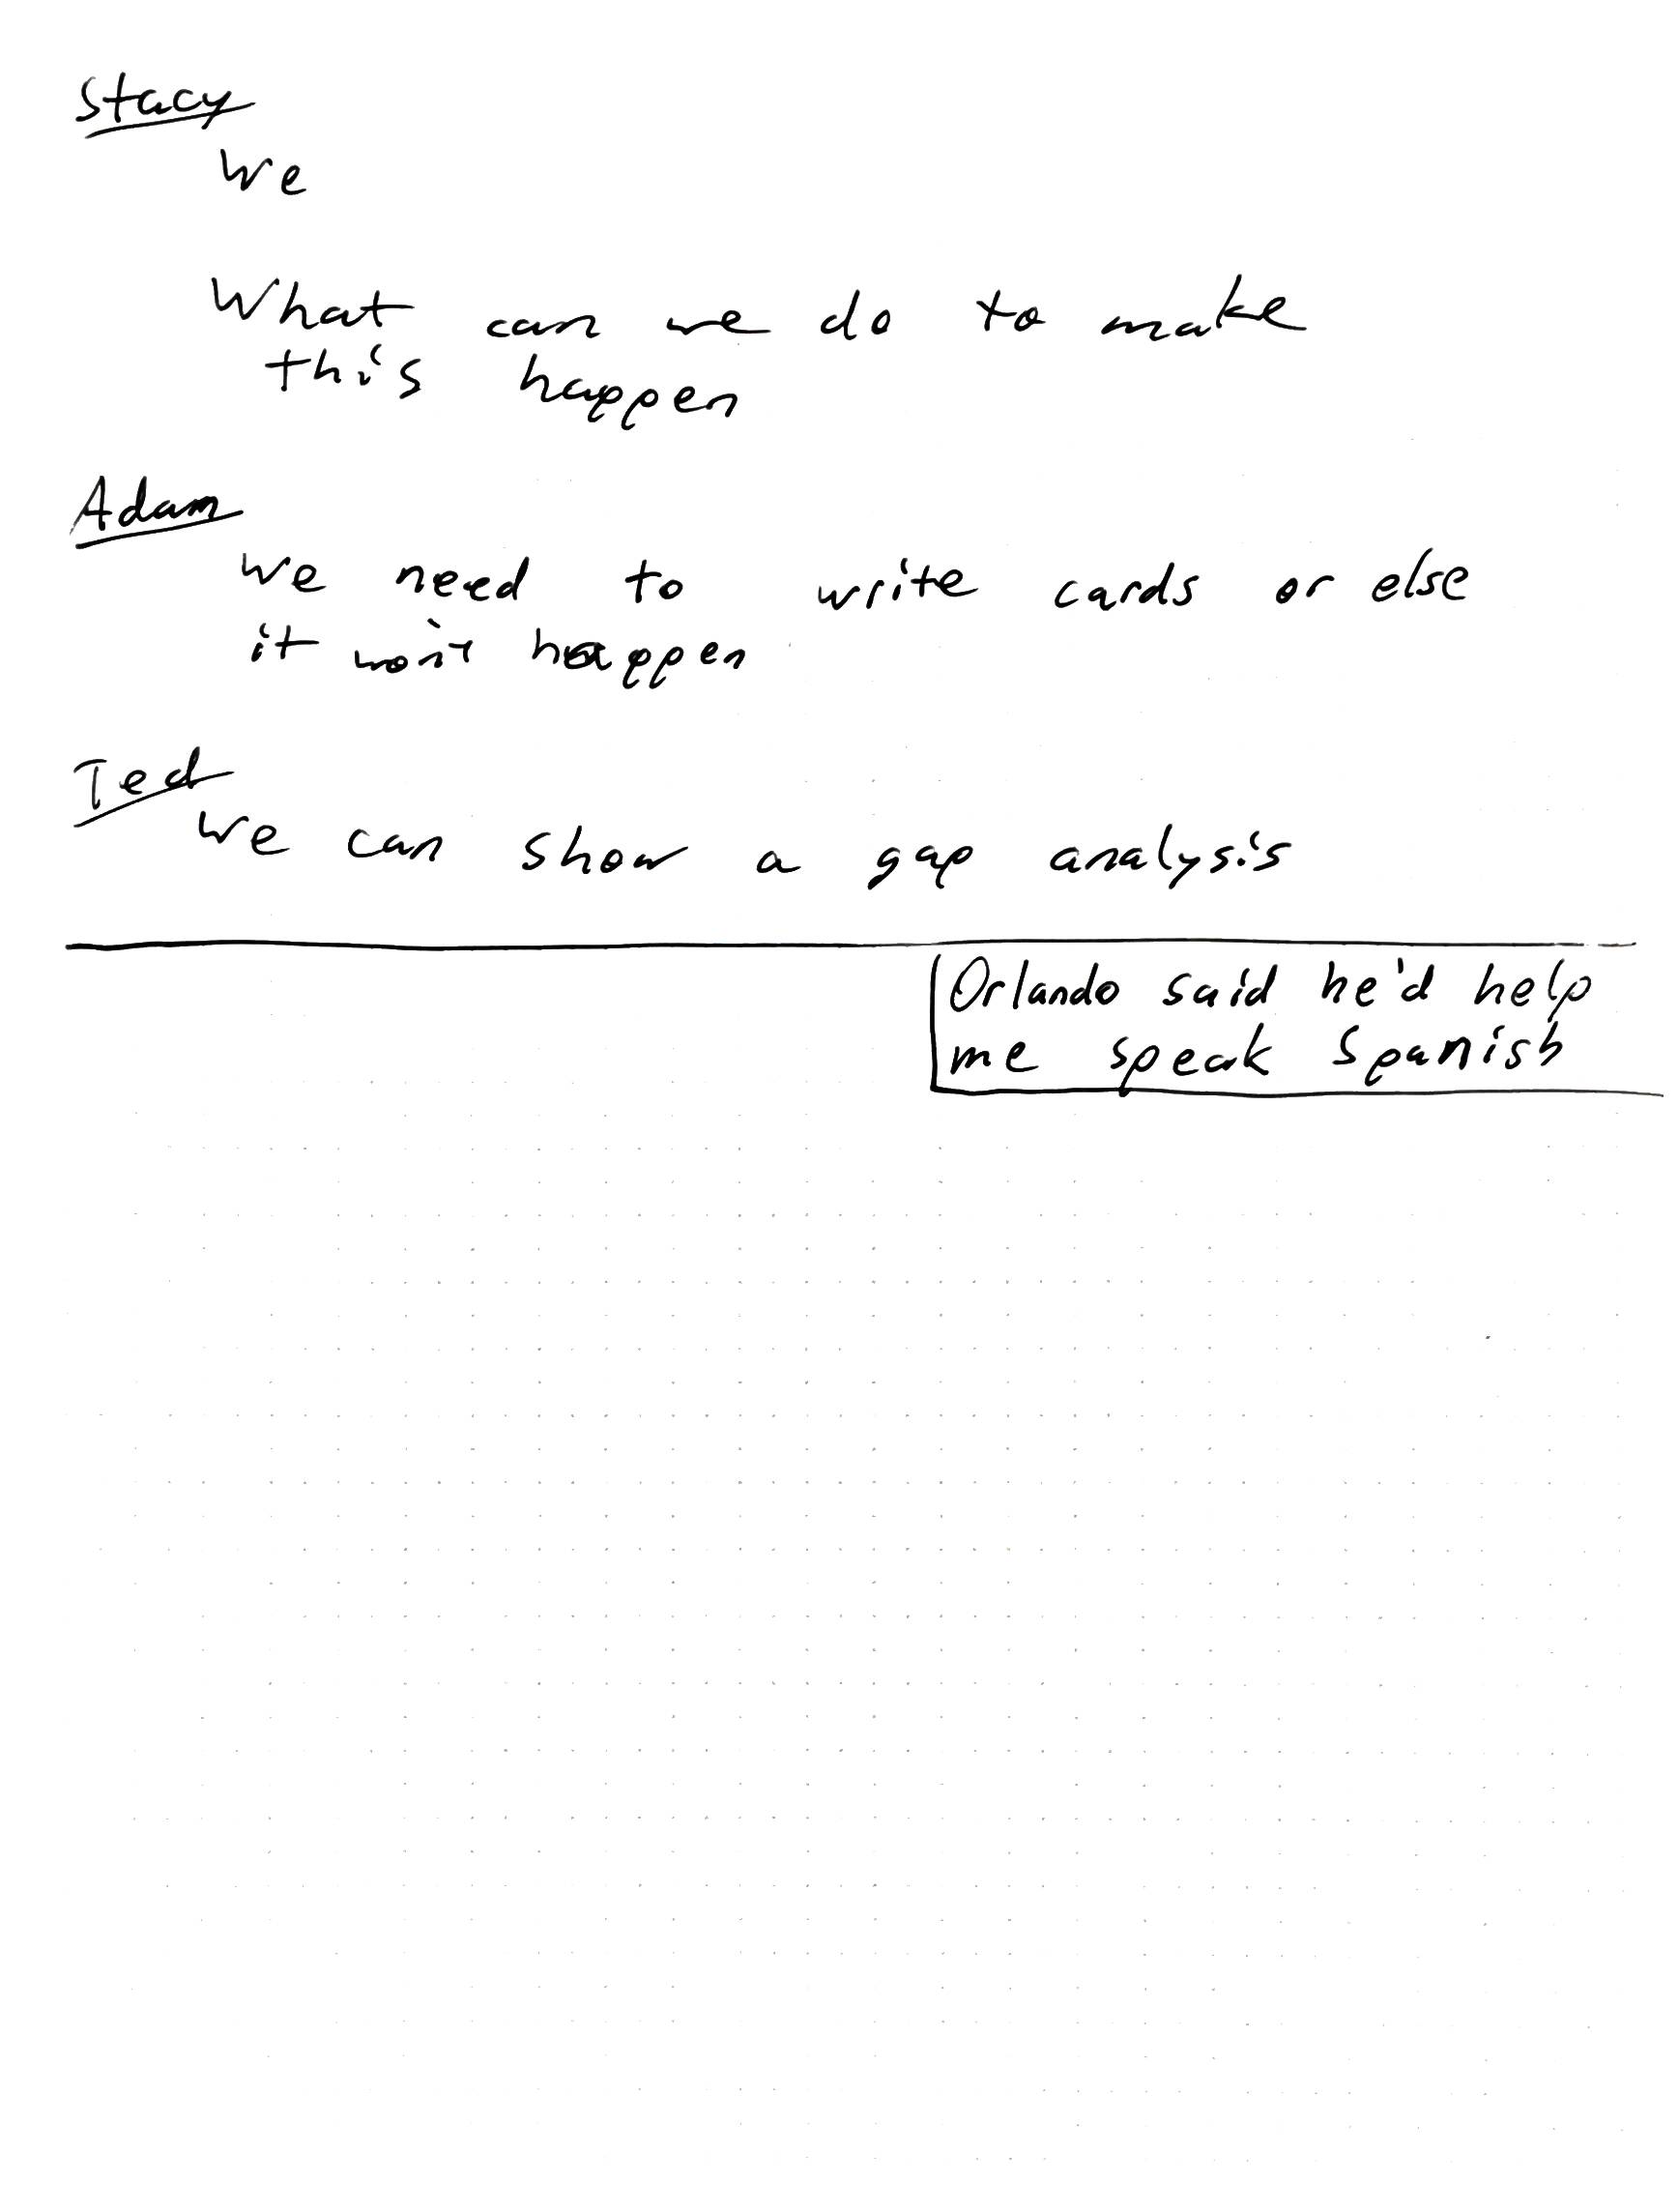 Stacy
We
What can we do to make
this happen
Adam
We need to write cards or else
it won't happen
Ted
We can show a gap analysis
Orlando said he'd help
me speak Spanish